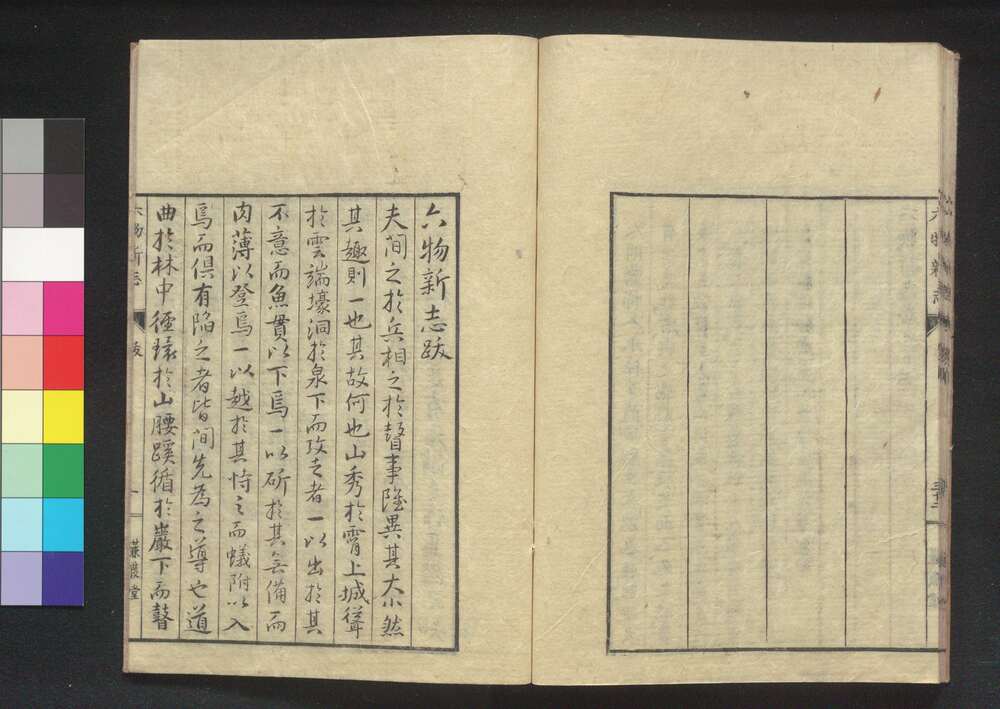 六物新志
六物新志跋
夫間之於兵相之於瞽事雖異其大小然
其趣則一也其故何也山秀於霄上城聳
於雲端壕洞於泉下而攻之者一以出於其
不意而魚貫以下焉一以斫於其無備而
肉薄以登焉一以越於其恃之而蟻附以入
焉而倶有陷之者皆間先為之導也道
曲於林中徑環於山腰蹊循於巖下而瞽
六物新志
跋
一
蒹葭堂